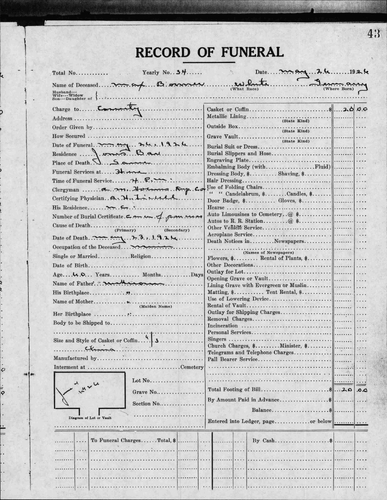 43
RECORD OF FUNERAL
Total No. Yearly No. 34 Date May 26 1926
Name of Deceased Max White Germany
Husband—
Wife—Widow
Son—Daughter of (What Race) (Where Born)
Charge to County
Address
Order Given by
How Secured
Date of Funeral May 26, 1926
Residence Bar
Place of Death Same
Funeral Services at Home
Time of Service 4 P.M.
Clergyman A. M.
Certifying Physician A. H.
His Residence
Number of Burial Certificate
Cause of Death
(Primary) (Secondary)
Date of Death May 23, 1926
Occupation of the Deceased Miner
Single or Married Religion
Date of Birth
Age 60 Years Months Days
Name of Father Unknown
His Birthplace "
Name of Mother "
(Maiden Name)
Her Birthplace "
Body to be Shipped
Size and Style of Casket or Coffin 6/3
Manufactured by
Interment at Cemetery
Lot No.
Grave No.
Section No.
Diagram of Lot or Vault
Casket or Coffin $ 20 00
Metallic Lining
(State Kind)
Outside Box
(State Kind)
Grave Vault
(State Kind)
Burial Suit or Dress
Burial Slippers and Hose
Engraving Plate
Embalming Body (with Fluid)
Dressing Body, $ Shaving, $
Hair Dressing
Use of Folding Chairs
" " Candelabrum, $ Candles, $
Door Badge, $ Gloves, $
Hearse
Auto Limousines to Cemetery @ $
Autos to R. R. Station @ $
Other Vehicle Service
Aeroplane Service
Death Notices in Newspapers
(Names of Newspapers)
Flowers, $ Rental of Plants, $
Other Decorations
Outlay for Lot
Opening Grave or Vault
Lining Grave with Evergreen or Muslin
Matting, $ Tent Rental, $
Use of Lowering Device
Rental of Vault
Outlay for Shipping Charges
Removal Charges
Incineration
Personal Services
Singers
Church Charges, $ Minister, $
Telegrams and Telephone Charges
Pall Bearer Service
Total Footing of Bill $ 20 00
By Amount Paid in Advance $
Balance $
Entered into Ledger, page or below
To Funeral Charges Total, $ By Cash $